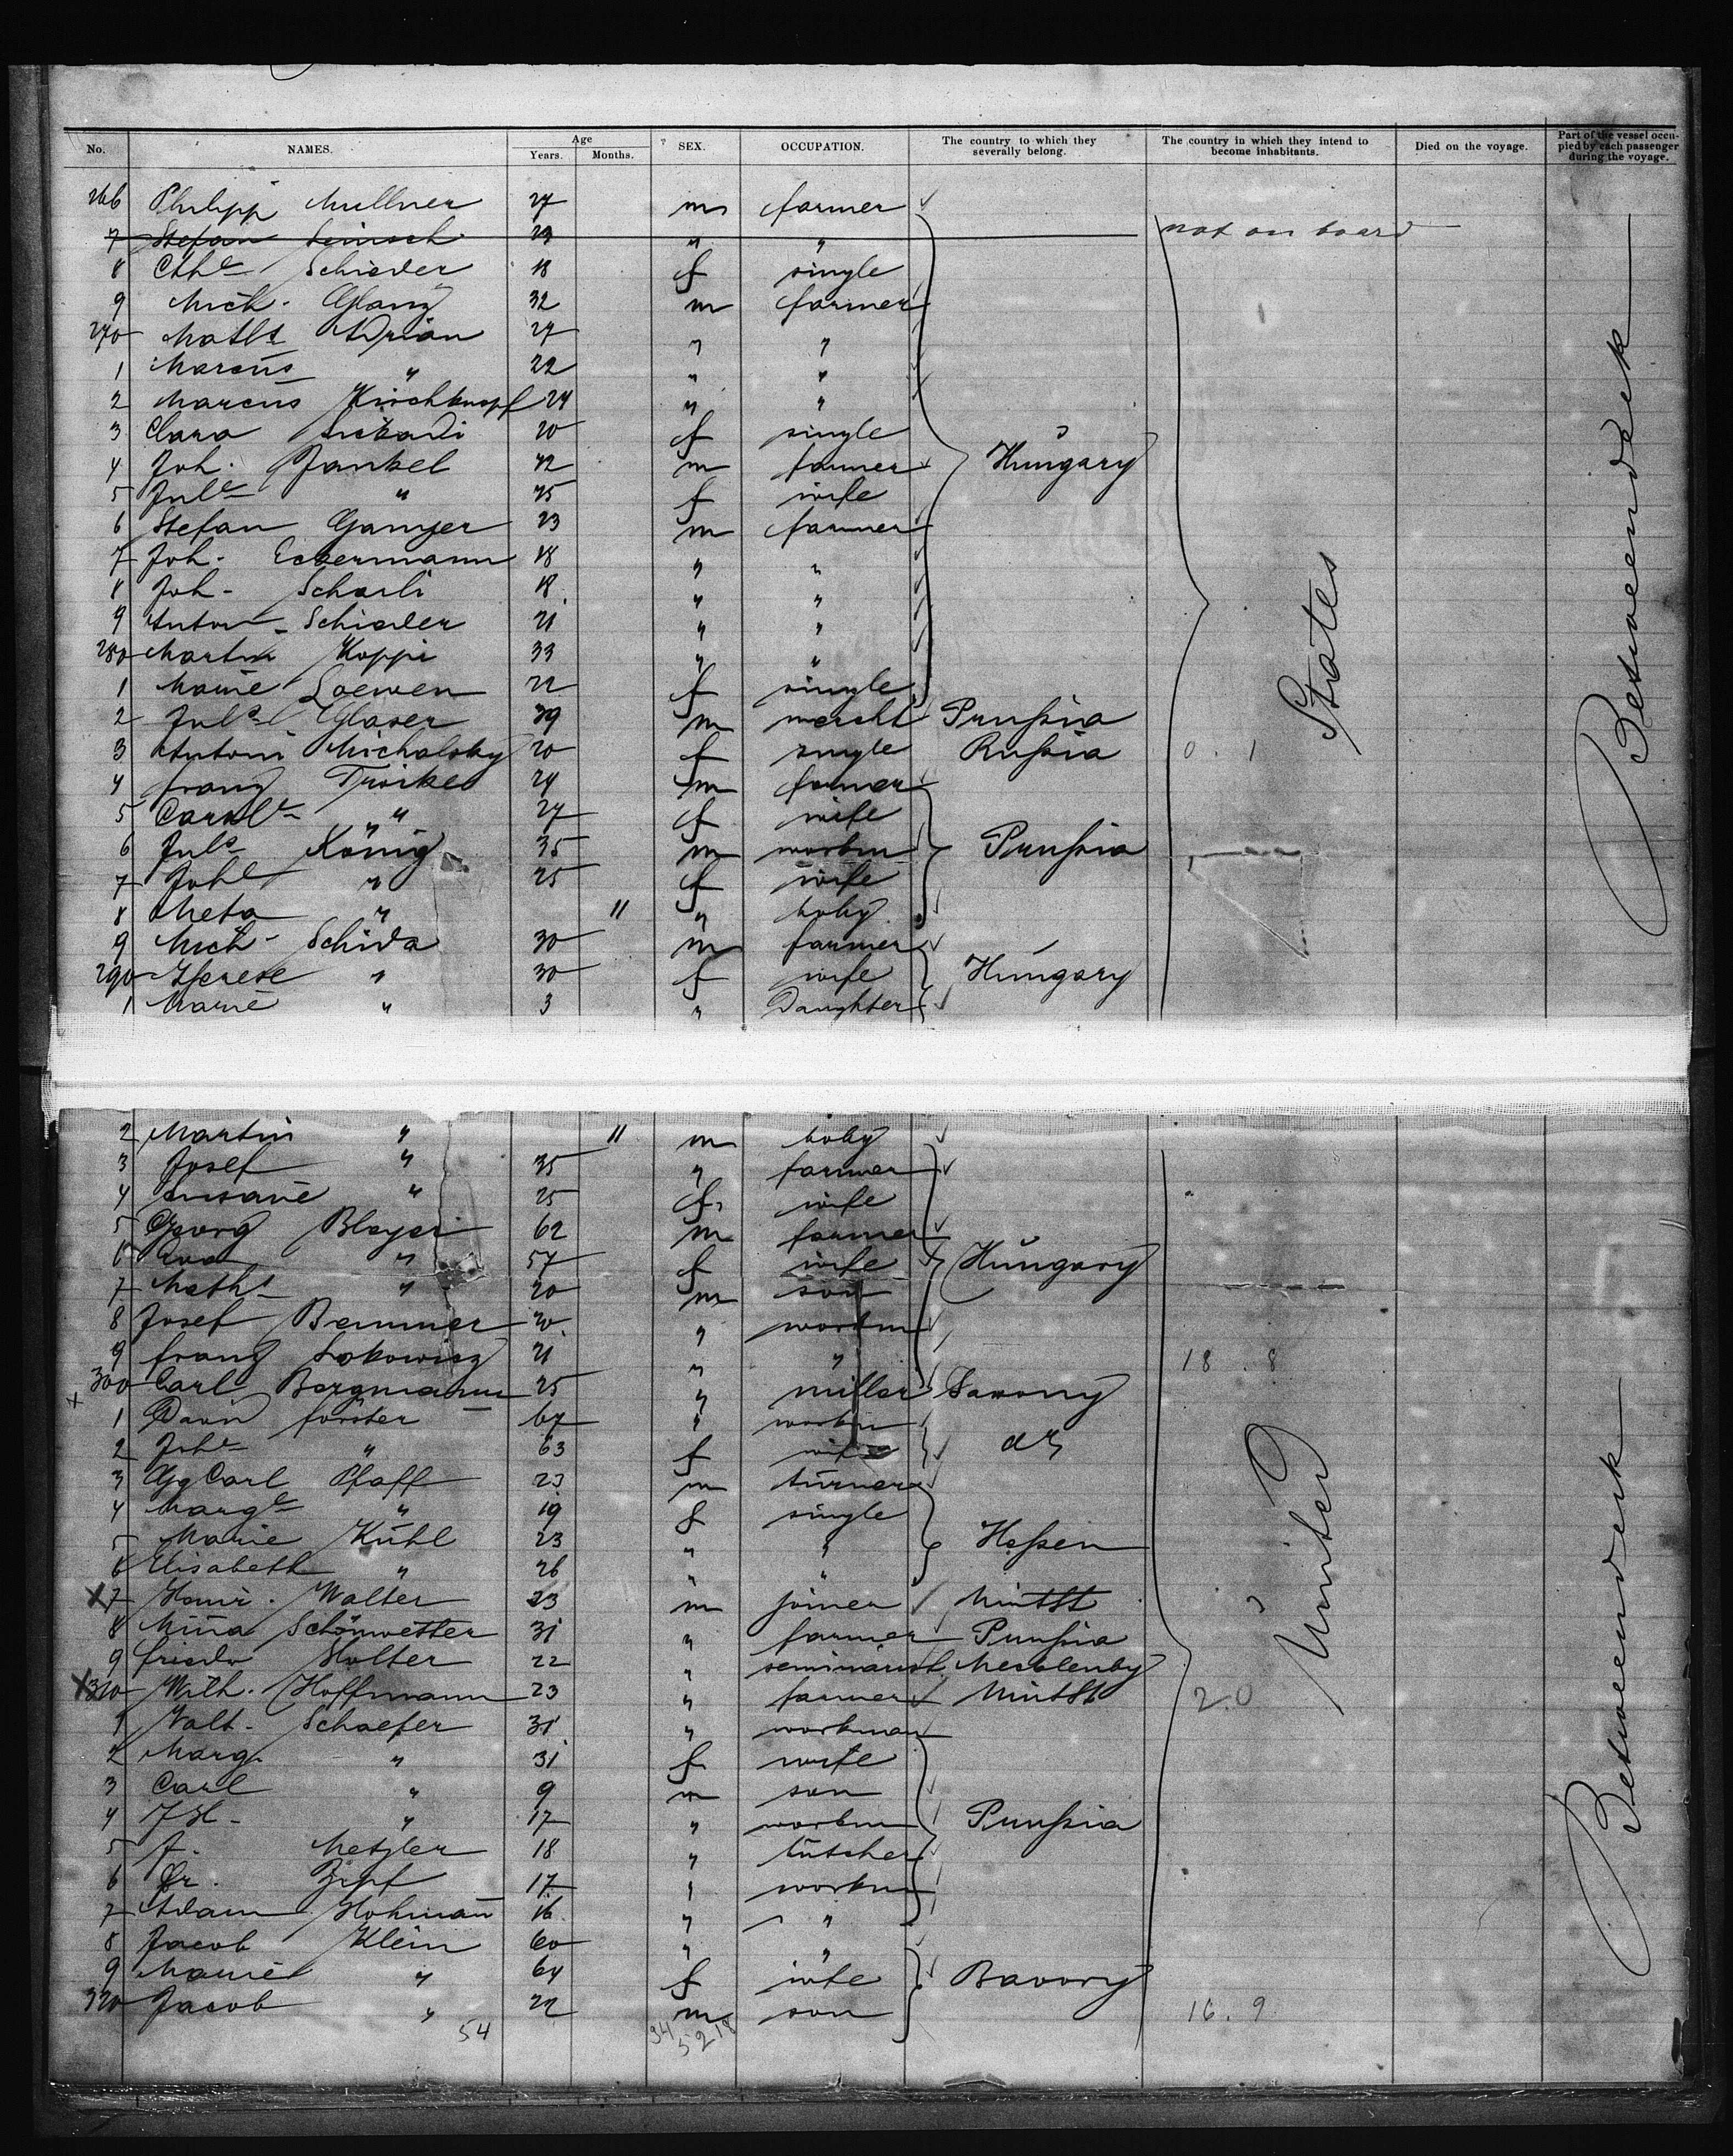 No. NAMES. Age Years. Months. SEX. OCCUPATION. The country to which they severally belong. The country in which they intend to become inhabitants. Died on the voyage. Part of the vessel occupied by each passenger during the voyage.
266 Philipp Mullner 27 m farmer
7 Stefan 29 " " not on board
8 Cthe Schieder 18 f single
9 Mich. Glanz 32 m farmer
270 Maths Adrian 27 " "
1 Marcus " 22 " "
2 Marcus Kirschknopf 24 " "
3 Clara 20 f single
4 Joh. Jankel 42 m farmer Hungary
5 Jule " 45 f wife
6 Stefan Gamzer 23 m farmer
7 Joh. Eckermann 18 " "
8 Joh. Scharli 18 " "
9 Anton Schieder 21 " "
280 Martin Koppi 33 " "
1 Marie Loewen 22 f single
2 Juls Glaser 39 m mercht Prussia
3 Antoni Michalsky 20 f single Russia 0. 1
4 Franz Troike 24 m farmer
5 Carole " 27 f wife
6 Juls König 35 m workm Prussia
7 Johe " 25 f wife
8 Meta " 11 " baby
9 Mich. Schida 30 m farmer
290 Therese " 30 f wife Hungary
1 Marie " 3 " Daughter
States
Betweendeck
2 Martin " 11 m baby
3 Josef " 35 " farmer
4 Susanne " 25 f wife
5 Georg Bleyer 62 m farmer
6 Eva " 57 f wife Hungary
7 Maths " 20 m son
8 Josef Bemmer 20 " workm
9 Franz Sokowicz 21 " " 18. 8
300 Carl Bergmann 25 " miller Saxony
1 David Förster 67 " workm
2 Johe " 63 f wife do
3 Gg Carl Pfaff 23 m turner
4 Marge " 19 f single
5 Marie Kühl 23 " " Hessen
6 Elisabeth " 26 " "
X 7 Heinr. Walter 23 m joiner UnitSt
8 Mina Schönwetter 31 " farmer Prussia
9 Friedr Holter 22 " seminarist Mecklenbg
X 310 Wilh. Hoffmann 23 " farmer UnitSt 2. 0
1 Valt. Schaefer 31 " workman
2 Marg. " 31 f wife
3 Carl " 9 m son
4 J H. " 17 " workm Prussia
5 F. Metzler 18 " butcher
6 Fr. Zipf 17 " workm
7 Adam Hohmann 16 " "
8 Jacob Klein 60 " "
9 Marie " 64 f wife Bavory
320 Jacob " 22 m son 16. 9
United
Betweendeck
54 34 5 2 18